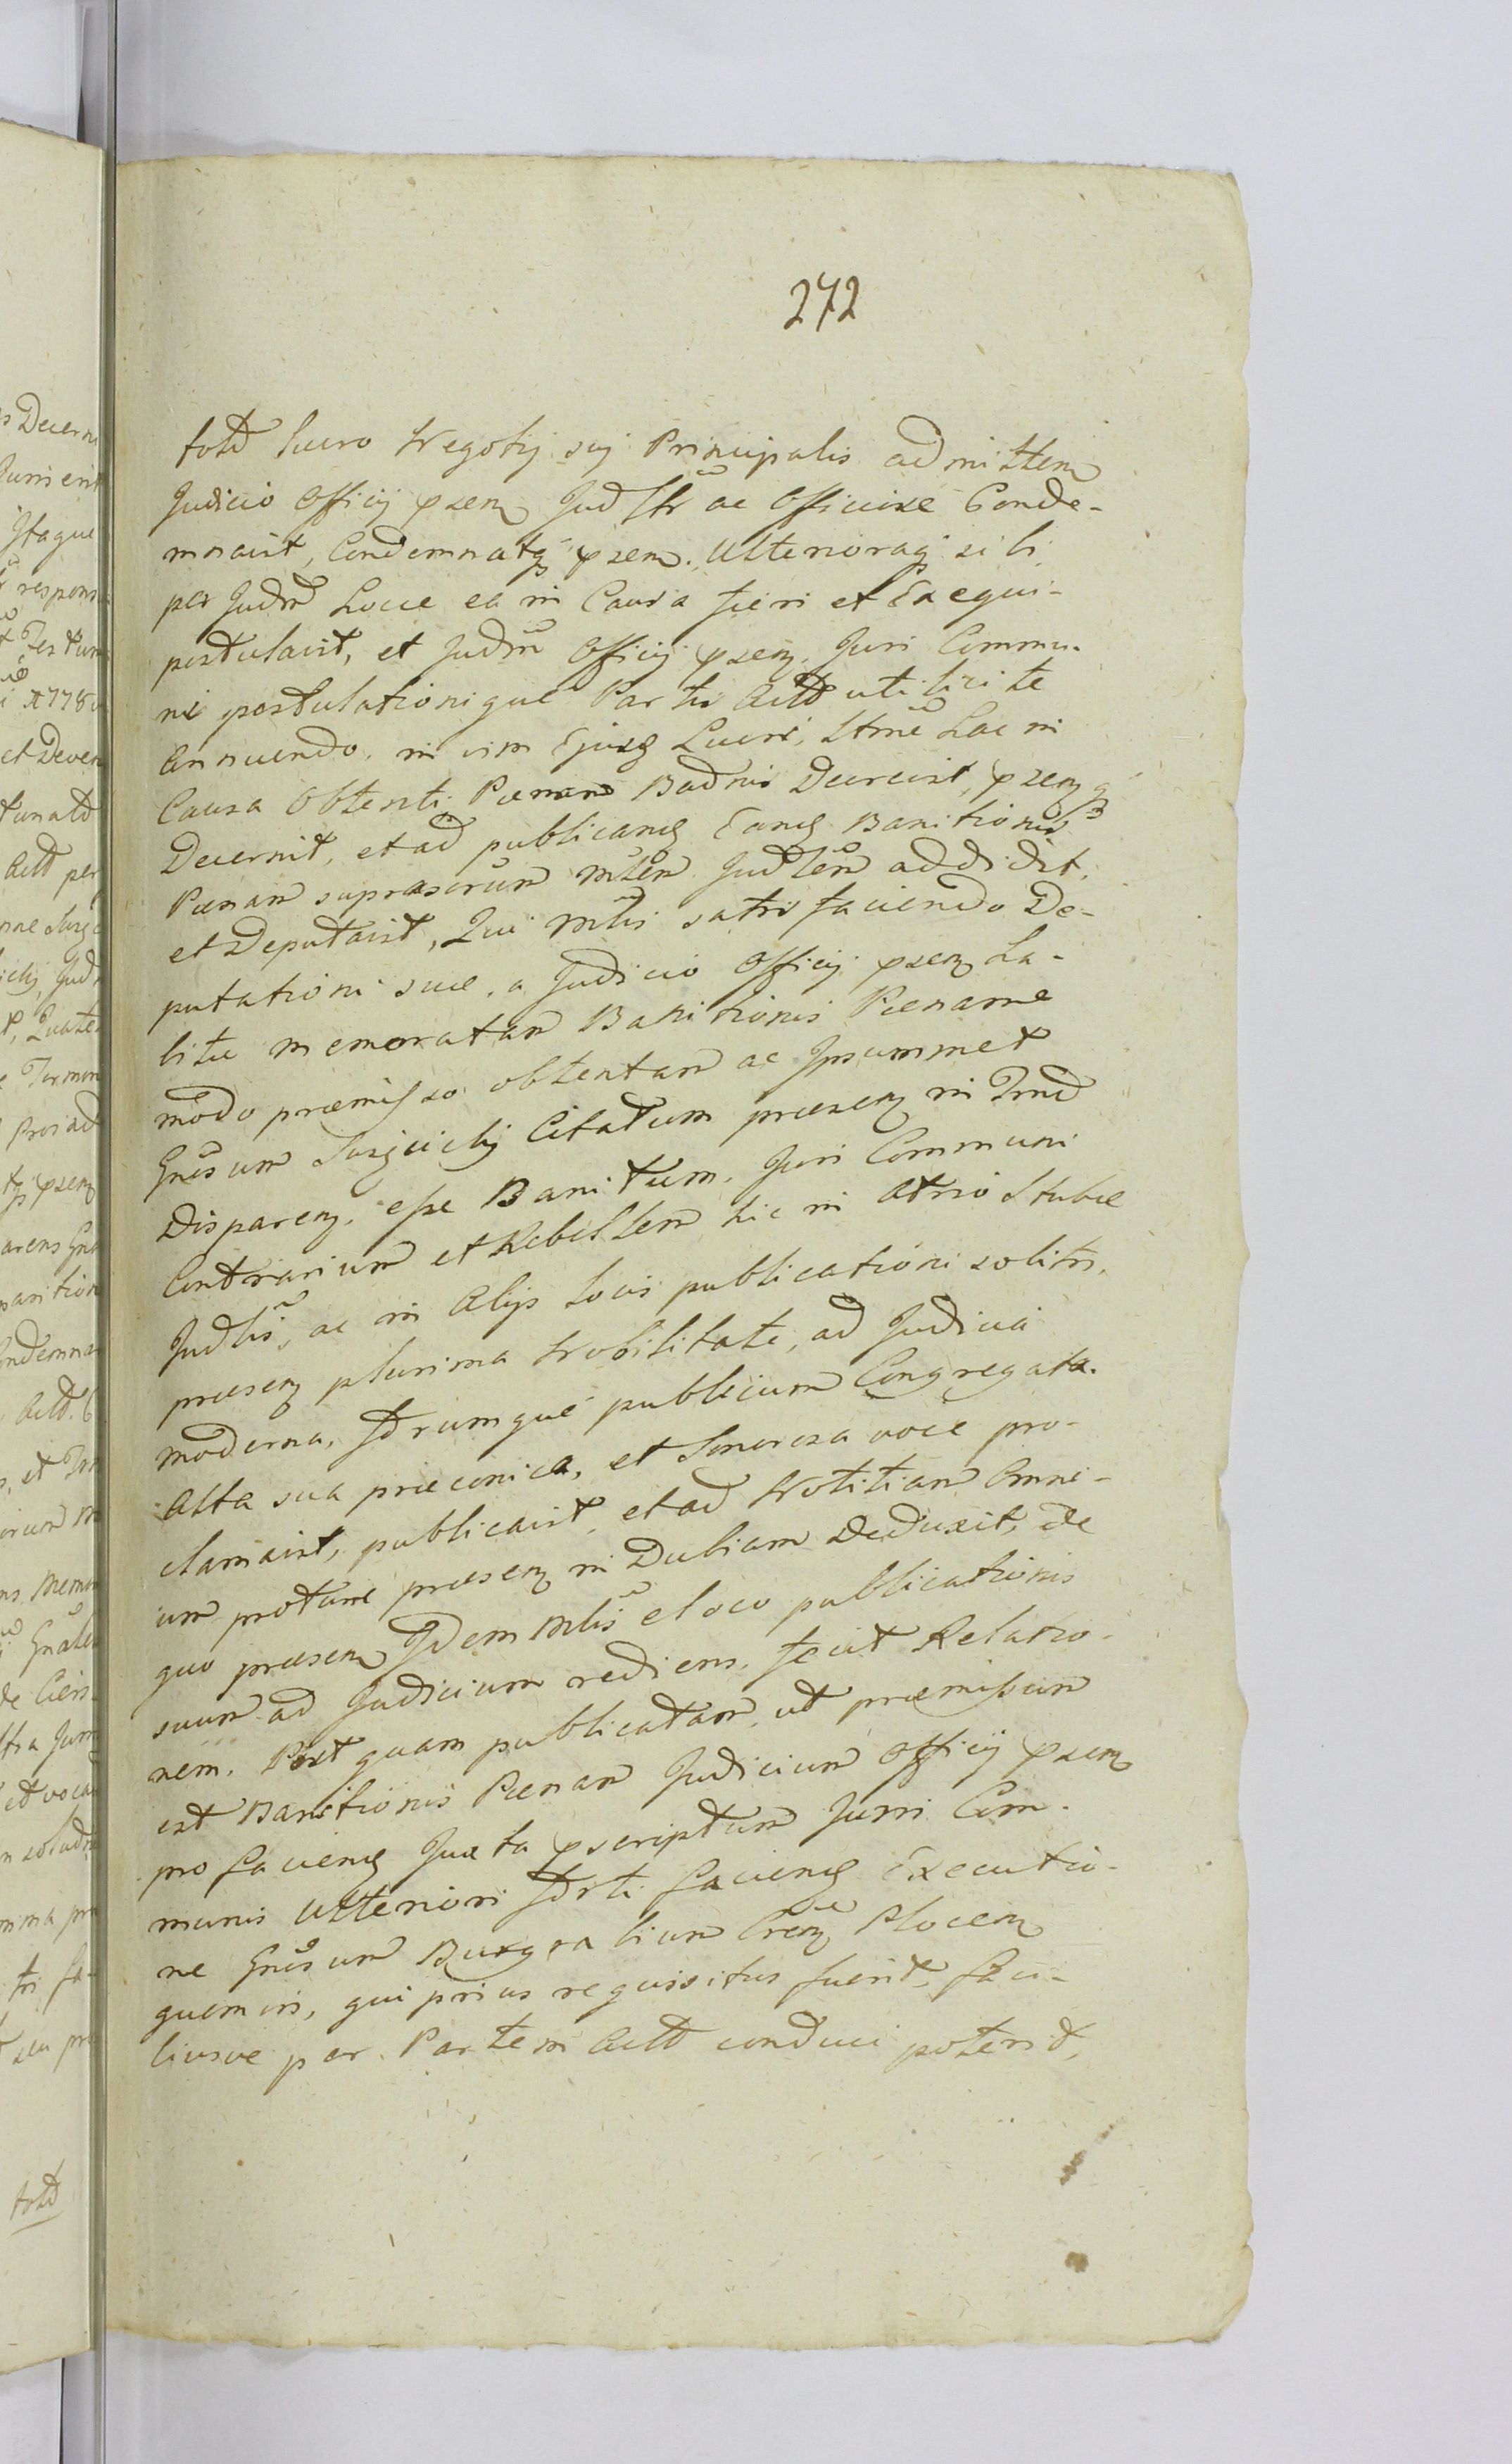 272
totd lucro Negotij sui Principalis admitten
Judicio Officij psen Judltr ac Officiose Conde-
mnavit, Condemnatq psen. Ulterioraq sibi
per Judm hocce ea in Causa fieri et Exequi-
postulavit, et Judm Officij psen, Juri Commu-
ni postulationique Partis Actt utilicite
annuendo, in vim Ejusd Lucri, ltme hac in
Causa Obtenti Paenam Badnis Decrevit, psenq
Decernit, et ad publicand Eand Banitionis
Paenam suprascrum Mlem Judlem addidit,
et Deputavit, Qui Mlis satisfaciendo De-
putationi suae, a Judicio Officij psen ha-
bitae memoratam Banitionis Paename
modo praemisso obtentam ac Ipsummet
Gnsum Citatum praesen in Tmd
Disparen, esse Banitum, Juri Communi
Contrarium et Rebellem hic in Atrio Stubae
Judlis, ac in Alijs locis publicationi solitis,
praesen plurima Nobilitate, ad Judicia
moderna, Forumque publicum Congregata.
Alta sua praeconica, et Sonorosa voce pro-
clamavit, publicavit, et ad Notitiam Omni-
um protunc praesen in Dubiam Deduxit, de
quo praesen Idem Mlis e loco publicationis
suum ad Judicium rediens, fecit Relatio-
nem. Postquam publicatam, ut praemissum
est Banitionis Paenam Judicium Officij psen
pro faciend Juxta pscriptum Juris Com-
munis Ulteriori forti faciend Executio-
ne Gnsum Burgrabium Cren Plocen
quemvis, qui prius requisitus fuerit, faci-
liusve per Partem Actt conduci poterit,